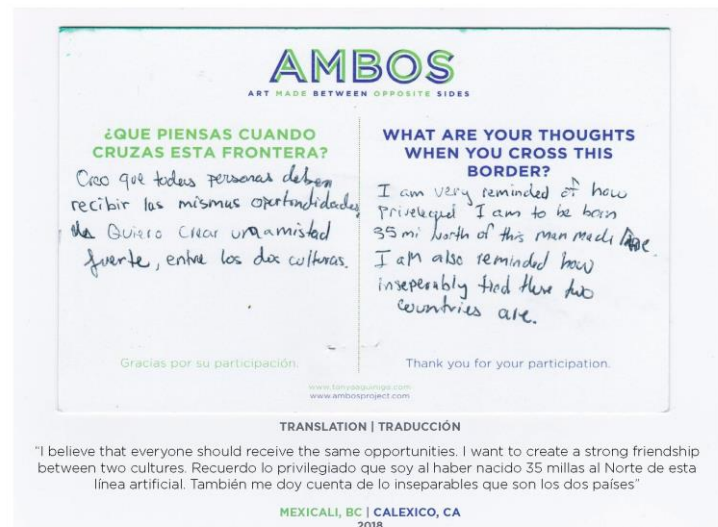 AMBOS
ART MADE BETWEEN OPPOSITE SIDES
¿QUE PIENSAS CUANDO
CRUZAS ESTA FRONTERA?
Creo que todas personas deben
recibir las mismas oportundidades
Quiero crear una amistad
fuerte, entre los dos culturas.
Gracias por su participación.
WHAT ARE YOUR THOUGHTS
WHEN YOU CROSS THIS
BORDER?
I am very reminded of how
priveleged I am to be born
35 mi North of this man made line.
I am also reminded how
inseperably tied these two
countries are.
Thank you for your participation.
www.tanyaaguiniga.com
www.ambosproject.com
TRANSLATION | TRADUCCIÓN
"I believe that everyone should receive the same opportunities. I want to create a strong friendship
between two cultures. Recuerdo lo privilegiado que soy al haber nacido 35 millas al Norte de esta
línea artificial. También me doy cuenta de lo inseparables que son los dos países"
MEXICALI, BC | CALEXICO, CA
2018